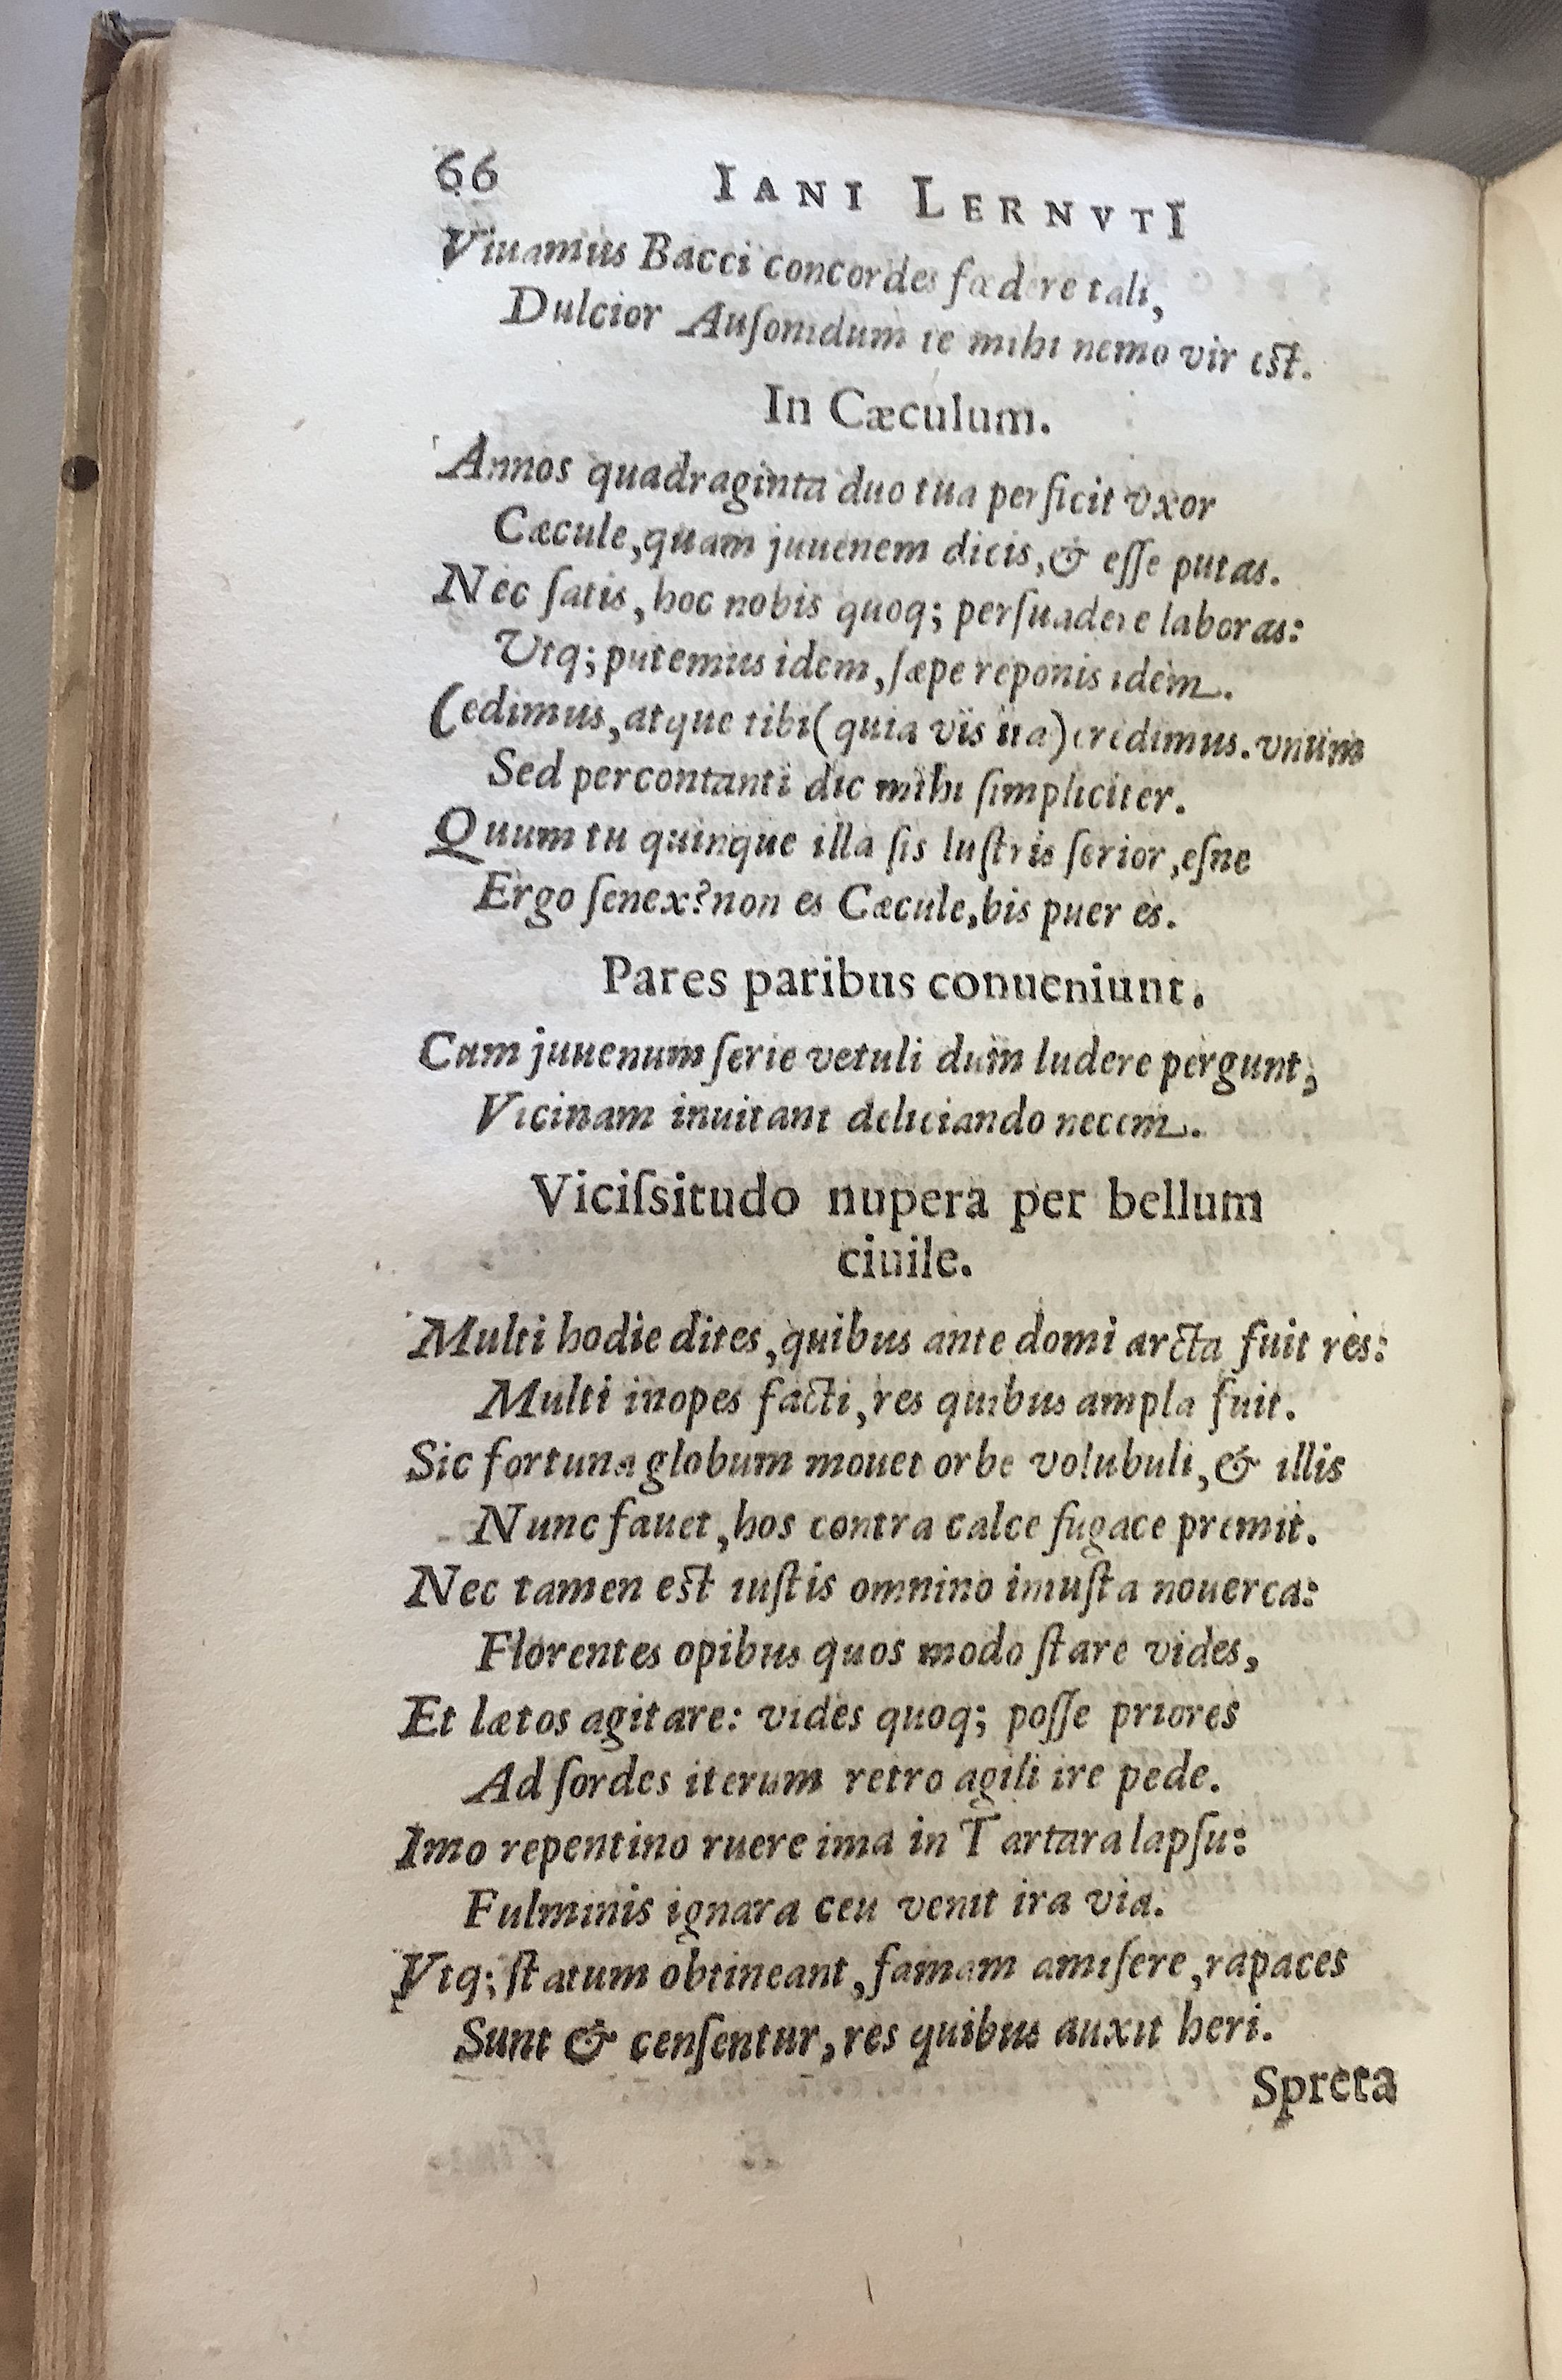 66 IANI LERNVTI
Viuamus Bacci concordes fœdere tali,
Dulcior Auſonidum te mihi nemo vir est.
In Cæculum.
Annos quadraginta duo tua perficit vxor
Cæcule, quam juuenem dicis, & eſſe putas.
Nec ſatis, hoc nobis quoq; perſuadere laboras:
Vtq; putemus idem, ſæpe reponis idem.
Cedimus, atque tibi (quia vis ita) credimus. vnum
Sed percontanti dic mihi ſimpliciter.
Quum tu quinque illa ſis luſtris ſerior, eſne
Ergo ſenex? non es Cæcule, bis puer es.
Pares paribus conueniunt.
Cum juuenum ſerie vetuli dum ludere pergunt,
Vicinam inuitant deliciando necem.
Viciſsitudo nupera per bellum
ciuile.
Multi hodie dites, quibus ante domi arcta fuit res:
Multi inopes facti, res quibus ampla fuit.
Sic fortuna globum mouet orbe volubuli, & illis
Nunc fauet, hos contra calce fugace premit.
Nec tamen est iuſtis omnino iniuſta nouerca:
Florentes opibus quos modo ſtare vides,
Et lætos agitare: vides quoq; poſſe priores
Ad ſordes iterum retro agili ire pede.
Imo repentino ruere ima in Tartara lapſu:
Fulminis ignara ceu venit ira via.
Vtq; ſtatum obtineant, famam amiſere, rapaces
Sunt & cenſentur, res quibus auxit heri.
Spreta